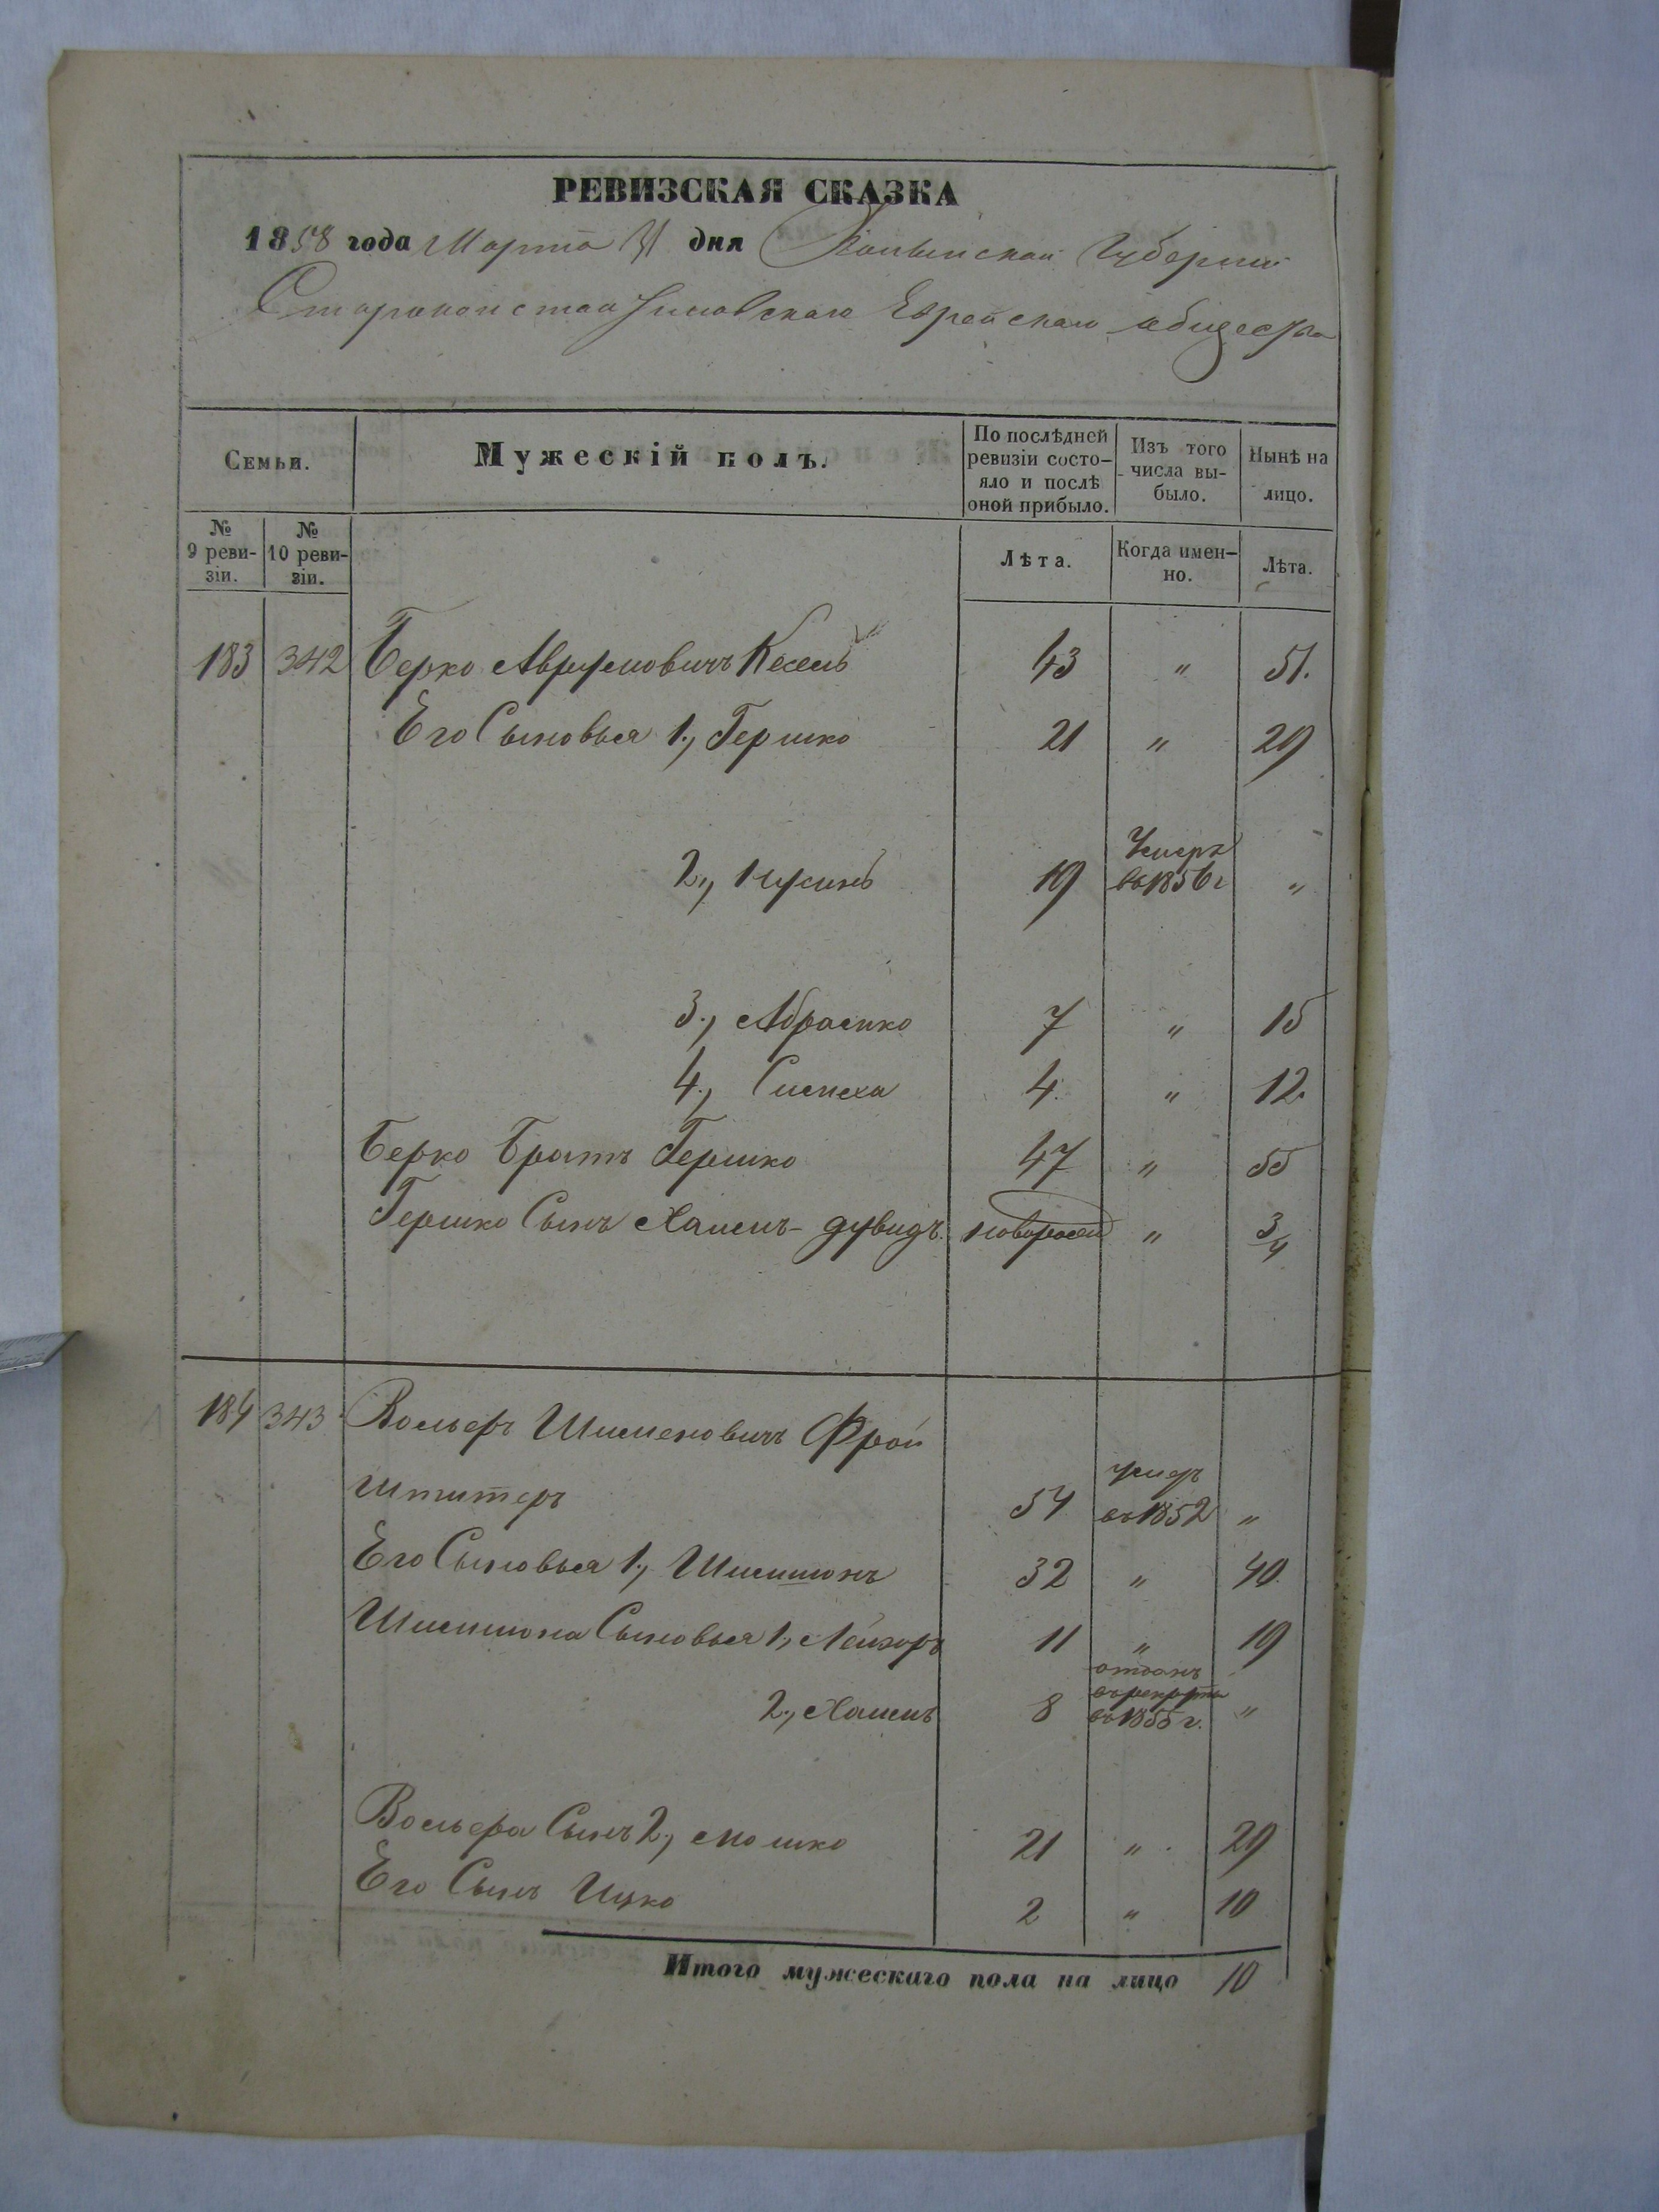 РЕВИЗСКАЯ СКАЗКА
1858 года Марта 31 дня Волынской Губернии
Староконстантиновскаго Еврейскаго общества
Семьи.
Мужескій полъ.
По послѣдней ревизіи состо-яло и послѣ оной прибыло.
Изъ того числа вы-было.
Нынѣ на лицо.
№ 9 реви-зіи.
№ 10 реви-зіи.
Лѣта.
Когда имен-но.
Лѣта.
183 342 Берко Аврумовичъ 43 " 51.
Его Сыновья 1., Гершко 21 " 29
2., Нусинъ 19 Умеръ въ 1856 г "
3., Абрамко 7 " 15
4., Симха 4. " 12.
Берко Братъ Гершко 47 " 55
Гершко Сынъ Хаимъ-дувидъ. новорожд " 3/4
184 343 Вольфъ Шимоновичъ Фрой
штитеръ 54 умеръ въ 1852 "
Его Сыновья 1., Шимшонъ 32 " 40.
Шимшона Сыновья 1., Лейзоръ 11 " 19
2., Хаимъ 8 отданъ въ рекруты въ 1855 г. "
Вольфа Сынъ 2., Мошко 21 " 29
Его Сынъ Ицко 2 " 10
Итого мужескаго пола на лицо 10